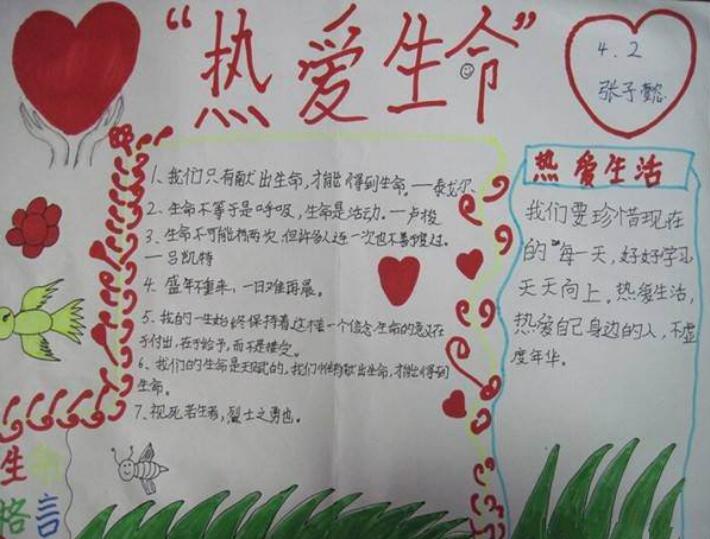 “热爱生命”
4.2
张子懿
1、我们只有献出生命,才能得到生命。——泰戈尔、
2、生命不等于是呼吸,生命是活动。—卢梭
3、生命不可能有两次,但许多人连一次也不善度过。
—吕凯特
4、盛年不重来,一日难再晨。
5、我的一生始终保持着这样一个信念.生命的意义在
于付出,在于给予,而不是接受。
6、我们的生命是天赋的,我们惟有献出生命,才能得到
生命。
7、视死若生者,烈士之勇也。
热爱生活
我们要珍惜现在
的每一天,好好学习
天天向上。热爱生活,
热爱自己身边的人,不虚
度年华。
生命
格言